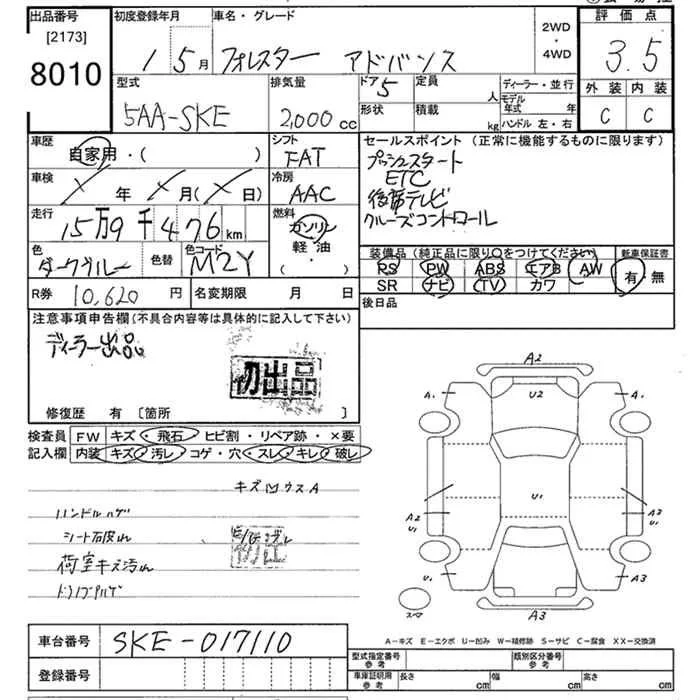 出品番号 初度登録年月 車名・グレード 2WD・4WD 評価点
[2173]
8010
1 5月 フォレスター アドバンス 3.5
型式 排気量 ドア 定員 ディーラー・並行 外装 内装
5AA-SKE 2,000cc 5 人 モデル年式 年 C C
形状 積載 kg ハンドル 左・右
車歴 自家用・( ) シフト FAT セールスポイント (正常に機能するものに限ります)
プッシュスタート
ETC
後席テレビ
クルーズコントロール
車検 年 月( 日) 冷房 AAC
走行 15万9千476km 燃料 ガソリン 軽油・( )
色 ダークブルー 色替 色コード M2Y
装備品(純正品に限り○をつけてください) 新車保証書
PS PW ABS エアB AW 有 無
SR ナビ TV カワ
R券 10,620円 名変期限 月 日
後日品
注意事項申告欄(不具合内容等は具体的に記入して下さい)
ディーラー出品
初出品
修復歴 有 〔箇所 〕
検査員 FW キズ・飛石・ヒビ割・リペア跡・×要
記入欄 内装 キズ・汚レ・コゲ・穴・スレ・キレ・破レ
キズ凹ウスA
ハンドルハゲ
シート石皮れ
荷室キズ汚れ
A2
A.
U2
A.
A2
U1
U1
A2
U1
U1
A3
A3
スペア
A-キズ E-エクボ U-凹み W-補修跡 S-サビ C-腐食 XX-交換済
車台番号 SKE-017110
登録番号
型式指定番号 参考 類別区分番号 参考
車庫証明用 参考 長さ cm 幅 cm 高さ cm